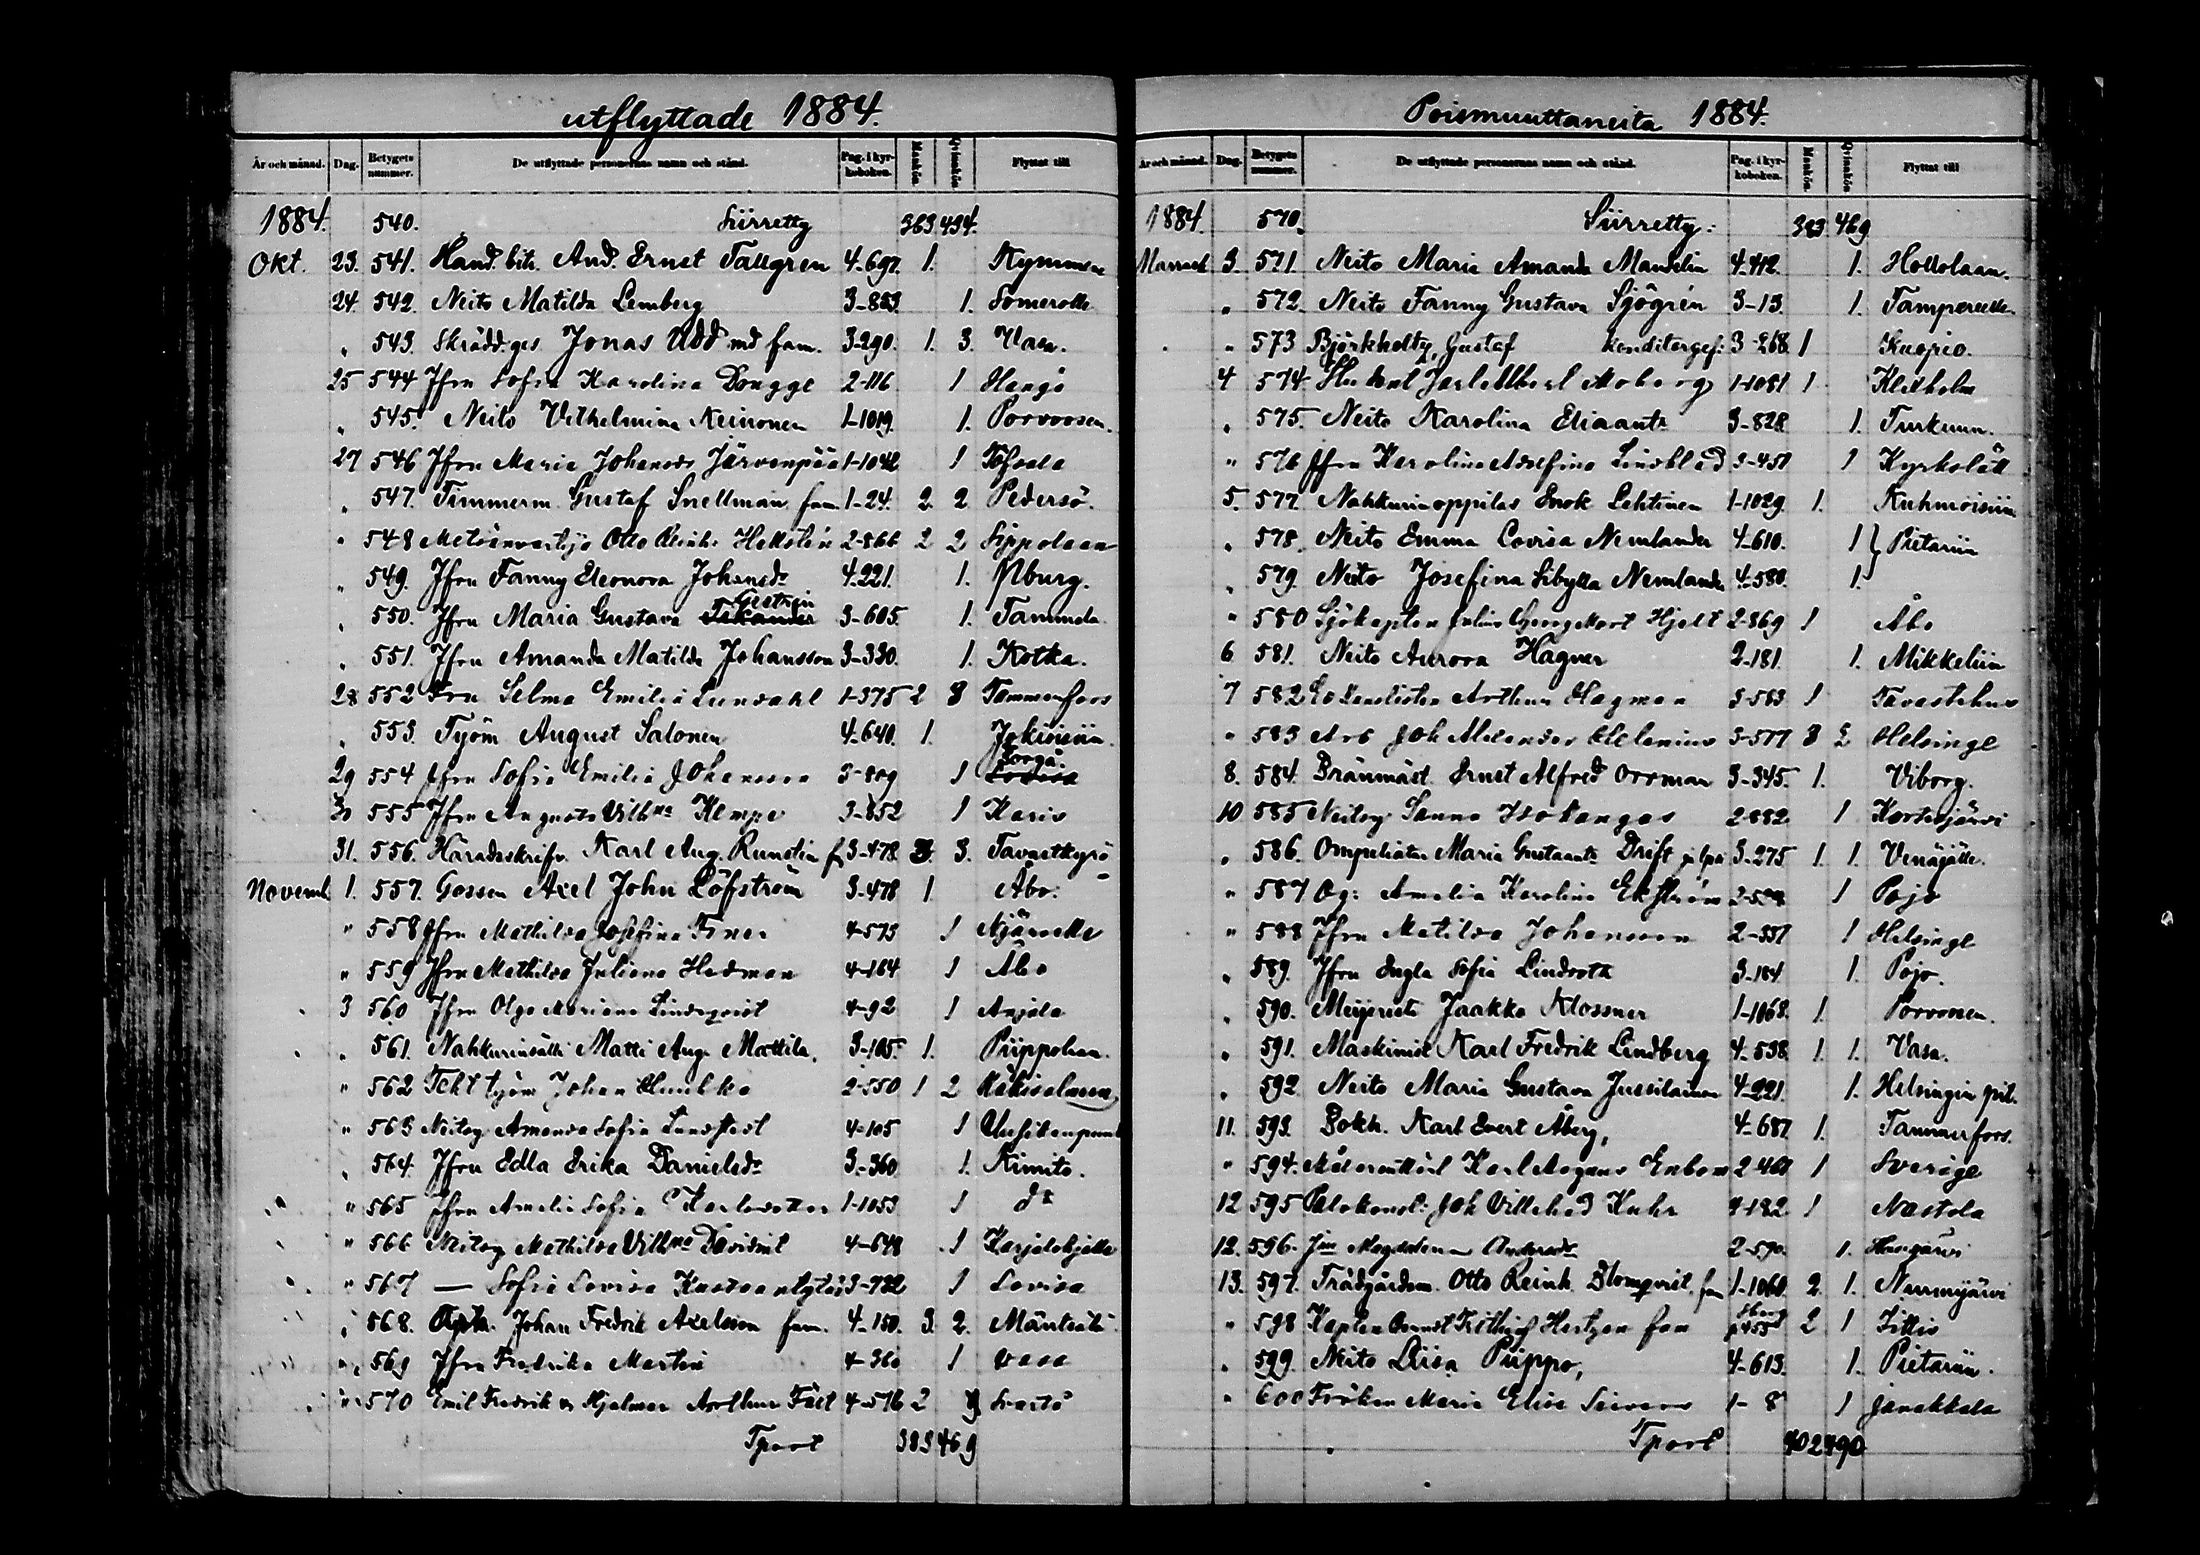 utflyttade 1884.
År och månad. Dag. Betygets nummer. De utflyttade personernas namn och stånd. Pag. i kyrkoboken. Mankön. Qvinkön. Flyttat till
1884. 540. Siirretty 363 434.
Okt. 23. 541. Hand. bitr. And. Ernst Tallgren 4-697. 1. Kymmene
24. 542. Neito Matilda Lemberg 3-823. 1. Somerolle
" 543. Skrädd.ges Jonas Udd md fam. 3-290. 1. 3. Vasa.
25 544 Jfrn Sofia Karolina Dongge 2-116 1 Hangö
" 545. Neito Vilhelmina Keinonen 1-1019. 1. Porvoosen.
27 546 Jfrn Maria Johansdr Järvenpää 1-1042 1
" 547. Timmerm. Gustaf Snellman fam. 1-24. 2. 2 Pedersö.
" 548 Metsänvartija Otto Reinh. Hellstén 2-866 2 2 Sippolaan
" 549. Jfrn Fanny Eleonora Johansdr 4-221. 1.
" 550. Jfrn Maria Gustava Gestrin 3-605. 1. Tammela.
" 551. Jfrn Amanda Matilda Johansson 3-330. 1. Kotka.
28 552 Fru Selma Emilia Lundahl 1-375 2 8 Tammerfors
" 553. Työm August Salonen 4-640. 1. Jokioisiin.
29 554 Jfrn Sofia Emilia Johansson 3-809 1 Borgå
30 555 Jfrn Augusta Vilhna Klempe 3-852 1 Karis
31. 556. Häradsskrifv. Karl Aug. Runstin f 3-478. 3. 3. Tavastkyrö
Novemb. 1. 557. Gossen Axel John Löfström 3-478 1. Åbo.
" 558 Jfrn Mathilda Josefina 4-573 1
" 559 Jfrn Mathilda Juliana Hedman 4-164 1 Åbo
3 560 Jfrn Olga Mariana Lindeqvist 4-92 1 Anjala
" 561. Nahkurinsälli Matti Aug. Mattila. 3-105. 1. Piippolaan.
" 562 Teht. työm Johan 2-550 1 2 Käkisalmeen
" 563 Neitsy Amanda Sofia Lundstedt 4-105 1
" 564. Jfrn Edla Erika Danielsdr 3-360 1. Kimito.
" 565 Jfrn Amalia Sofia Karlsdotter 1-1053 1 dr
" 566 Neitsy Mathilda Vilhna Davidint 4-648 1 Karjalohjalle
" 567 — Sofia Lovisa Kustaantytär 3-722 1 Lovisa
" 568. Johan Fredrik Axelsson fam. 4-150. 3. 2. Mäntsälä.
" 569 Jfrn Fredrika Martin 4-360 1 Vasa
" 570 Emil Fredrik o Hjalmar Arthur Fält 4-576 2
Tport 383 469
Poismuuttaneita 1884.
År och månad. Dag. Betygets nummer. De utflyttade personernas namn och stånd. Pag. i kyrkoboken. Mankön. Qvinkön. Flyttat till
1884. 570. Siirretty: 383 469
Marrask 3. 571. Neito Maria Amanda Mandelin 4-412. 1. Hollolaan.
" 572. Neito Fanny Gustava Sjögrén 3-13. 1. Tampereelle.
" 573 Björkholtz, Gustaf konditorges: 3-268. 1 Kuopio.
4 574 Student Jarl Albert Moberg 1-1081 1 Kexholm
" 575. Neito Karolina Eliaantr 3-828 1. Turkuun.
" 576 Jfrn Karolina Adolfina Lindblad 3-451 1 Kyrkslätt
5. 577. Nahkurinoppilas Enok Lehtinen 1-1029. 1. Kuhmoisiin
" 578. Neito Emma Lovisa Nemlander 4-610. 1 } Pietariin
" 579. Neito Josefina Sibylla Nemlander 4-580. 1.
" 580 Sjökapten Julius Georg Mort Hjelt 2-869 1 Åbo
6. 581. Neito Aurora Hagner 2-181. 1. Mikkeliin
7 582 Arthur Hagman 3-563 1 Tavastehus
" 583 Arb Joh Alexander Helenius 3-577 3 2 Helsinge
8. 584. Brännmäst. Ernst Alfred Orrman 3-345. 1. Viborg.
10 585 Neitsy Sanna Isokangas 2-882 1 Kortesjärvi
" 586. Ompeliatar Maria Gustaantr Drift ja lpsi 3-275 1. 1. Venäjälle.
" 587 Og: Amalia Karolina Ekström 1 Pojo
" 588 Jfrn Matilda Johansson 2-551 1 Helsinge
" 589. Jfrn Ingla Sofia Lindroth 3-184 1. Pojo.
" 590. Meijeristi Jaakko Klossner 1-1068. 1. Porvoosen.
" 591. Maskinist Karl Fredrik Lindberg 4-538 1. 1. Vasa.
" 592. Neito Maria Gustava Jussilainen 4-221. 1. Helsingin pit.
11. 593. Bokh. Karl Evert Åberg, 4-687. 1. Tammerfors.
" 594. Karl Magnus Enbom 2-461 1 Sverige
12 595 Palokonst: Joh Villehad Kuhr 4-182 1 Nastola
12. 596. Jfrn Magdalena Andersdr 2-590. 1.
13. 597. Trädgårdsm. Otto Reinh. Blomqvist. fam 1-1060. 2. 1. Nurmijärvi
" 598 Kapten Ernst Frithiof Hertzen fam p 455 2 1 Iittis
" 599. Neito Liisa Piippo, 4-613. 1. Pietariin.
" 600 Fröken Maria Elise 1-8 1 Janakkala
Tport 402 490